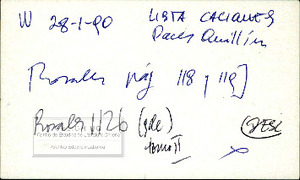 W 28-1-90 LISTA CACIQUES
Paces Quillín
Rosales pág 118 y 119]
Rosales 1126 (gde)
tomo II